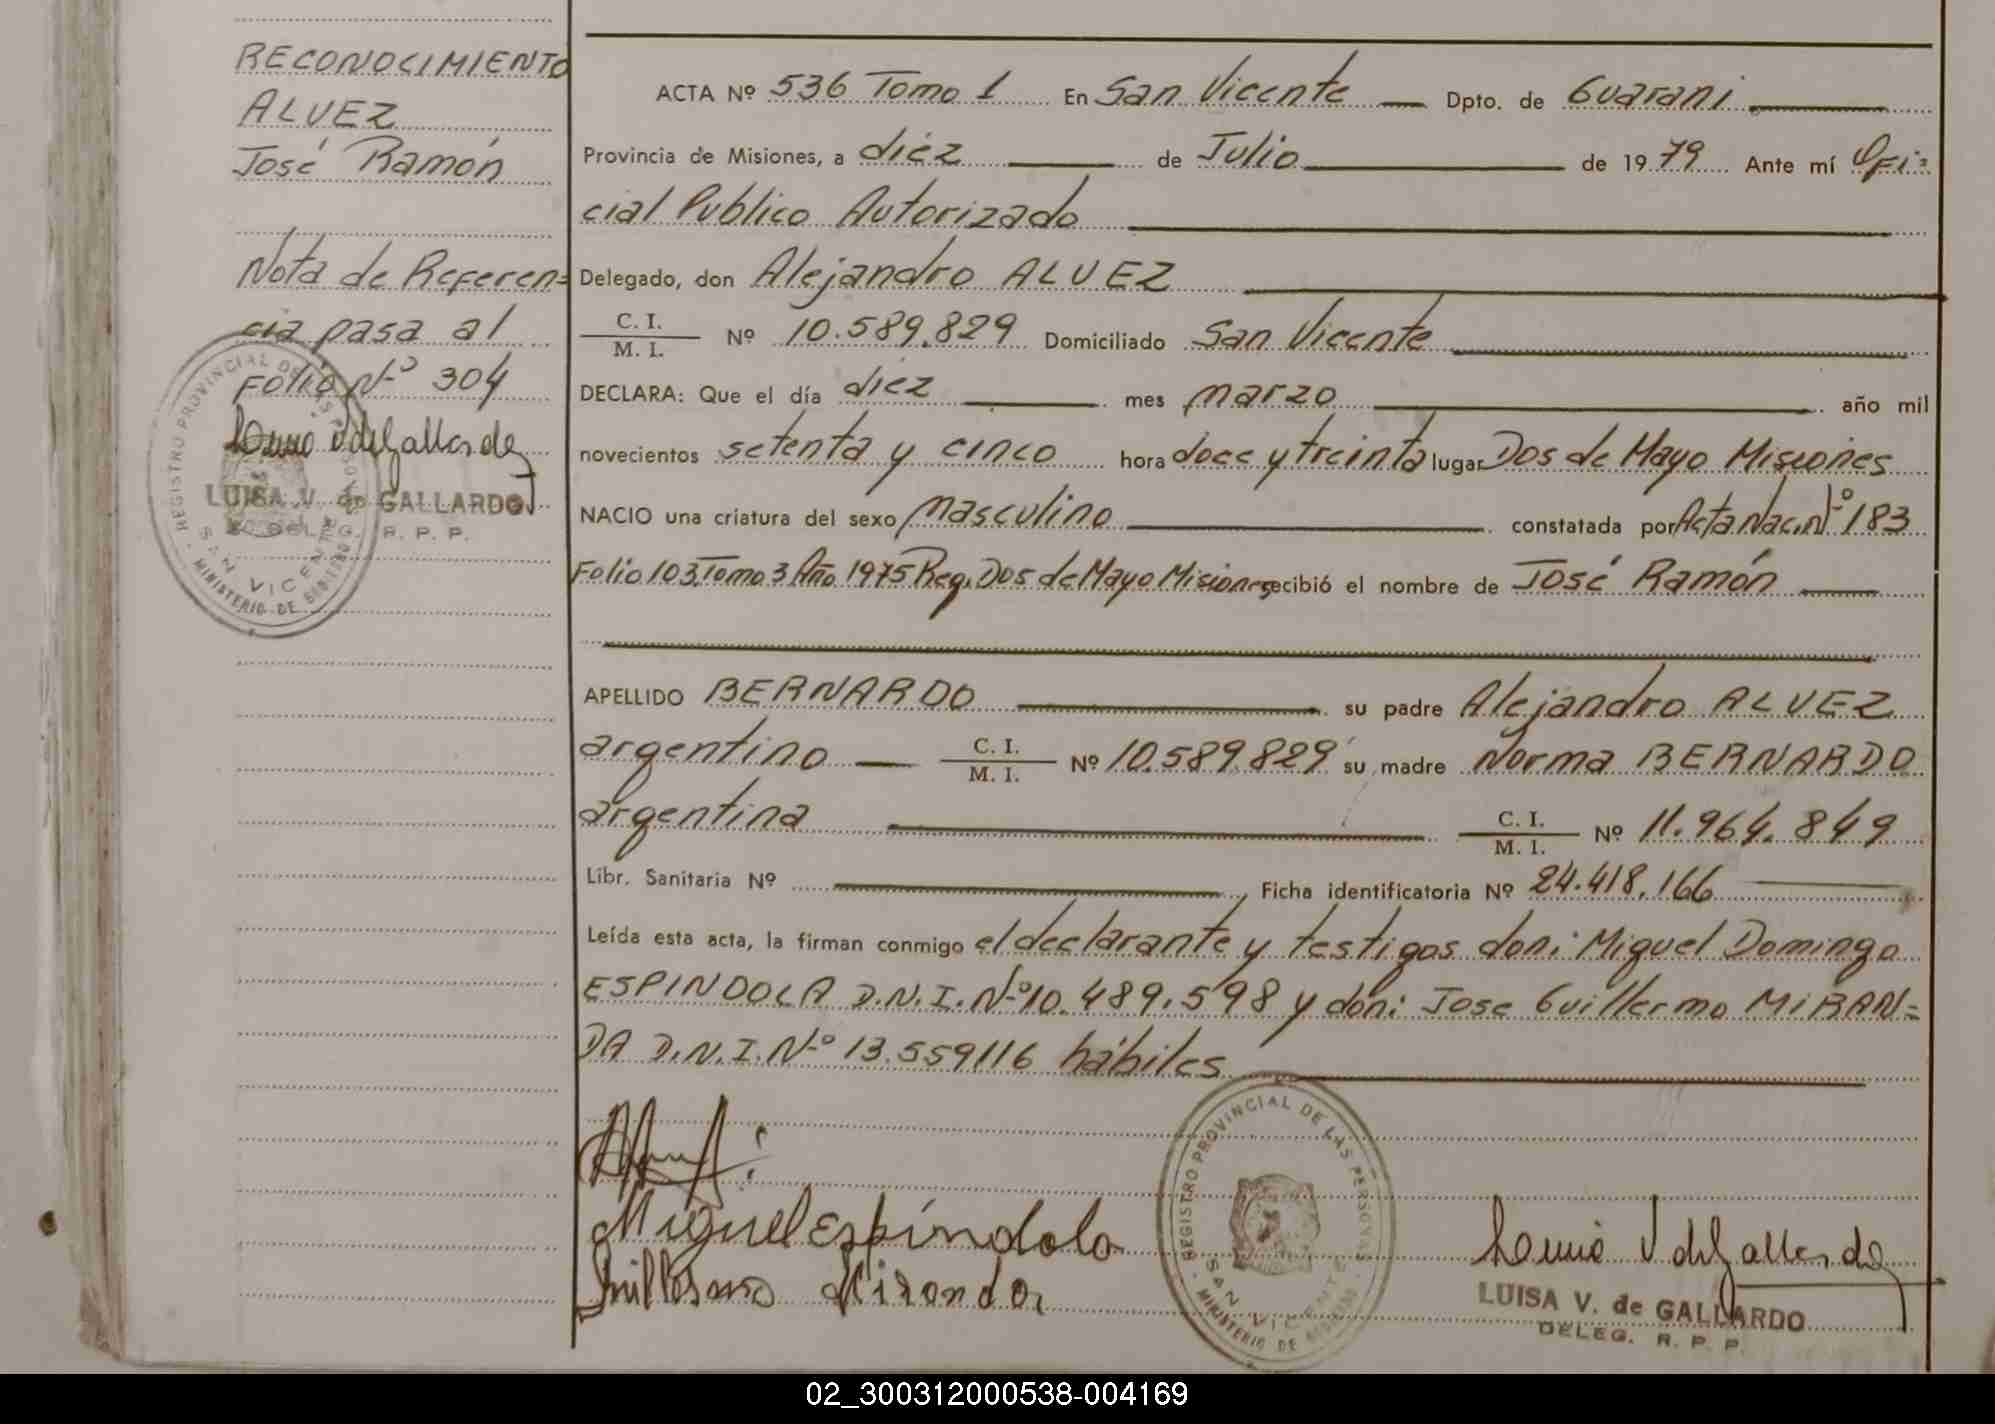 RECONOCIMIENTO
ALVEZ
José Ramón
Nota de Referen=
cia pasa al
Folio Nº 304
LUISA V. de GALLARDO
DELEG. R. P. P.
REGISTRO PROVINCIAL DE LAS PERSONAS
SAN VICENTE
MINISTERIO DE GOBIERNO
ACTA Nº 536 Tomo 1 En San Vicente Dpto. de Guarani
Provincia de Misiones, a diéz de Julio de 1979 Ante mí Ofi=
cial Publico Autorizado
Delegado, don Alejandro ALVEZ
C. I.
M. I. Nº 10.589.829 Domiciliado San Vicente
DECLARA: Que el día diez mes marzo año mil
novecientos setenta y cinco hora doce y treinta lugar Dos de Mayo Misiones
NACIO una criatura del sexo masculino constatada por Acta Nac. Nº 183
Folio 103 Tomo 3 Año 1975 Reg. Dos de Mayo Misiones recibió el nombre de José Ramón
APELLIDO BERNARDO su padre Alejandro ALVEZ
argentino C. I.
M. I. Nº 10.589.829 su madre Norma BERNARDO
argentina C. I.
M. I. Nº 11.964.849
Libr. Sanitaria Nº Ficha identificatoria Nº 24.418.166
Leída esta acta, la firman conmigo el declarante y testigos don: Miguel Domingo
ESPINDOLA D.N.I. Nº 10.489.598 y don: Jose Guillermo MIRAN=
DA D.N.I. Nº 13.559116 hábiles
Miguel Espíndola
Guillermo Miranda
REGISTRO PROVINCIAL DE LAS PERSONAS
SAN VICENTE
MINISTERIO DE GOBIERNO
LUISA V. de GALLARDO
DELEG. R. P. P.
02_300312000538-004169